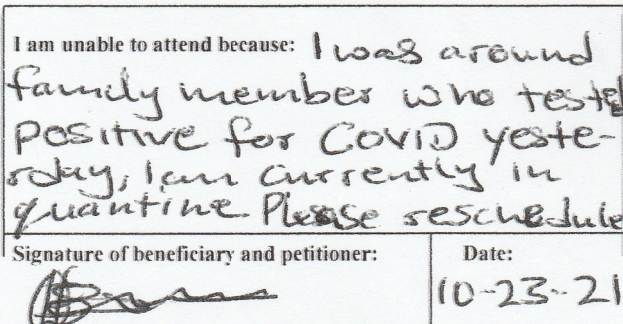 I am unable to attend because: I was around
family member who tested
positive for COVID yeste-
rday, I am currently in
quantine. Please reschedule
Signature of beneficiary and petitioner:
Date:
10-23-21